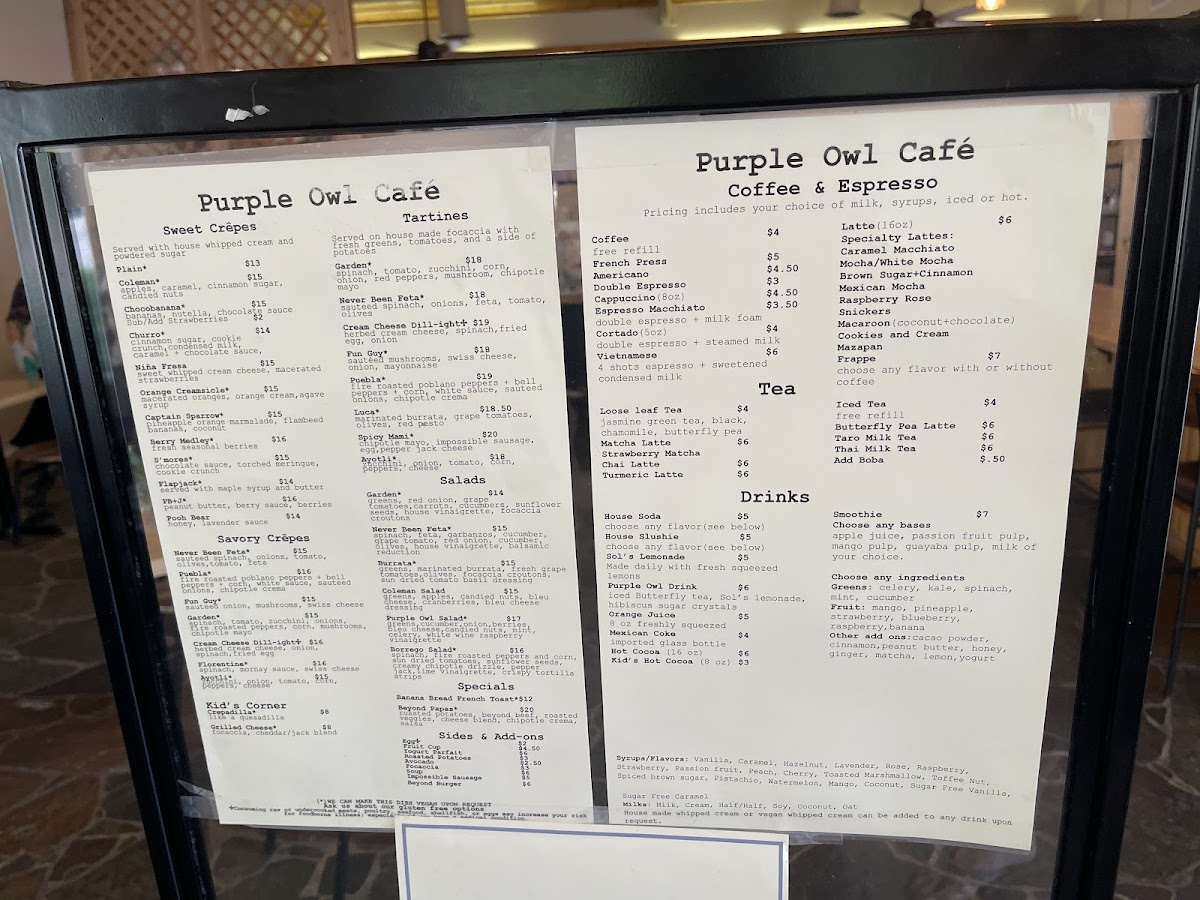 Purple Owl Café
Sweet Crêpes
Served with house whipped cream and
powdered sugar
Plain* $13
Coleman* $15
apples, caramel, cinnamon sugar,
candied nuts
Chocobanana* $15
bananas, nutella, chocolate sauce
Sub/Add Strawberries $2
Churro* $14
cinnamon sugar, cookie
crunch,condensed milk,
caramel + chocolate sauce,
Niña Fresa $15
sweet whipped cream cheese, macerated
strawberries
Orange Creamsicle* $15
macerated oranges, orange cream,agave
syrup
Captain Sparrow* $15
pineapple orange marmalade, flambeed
bananas, coconut
Berry Medley* $16
fresh seasonal berries
S'mores* $15
chocolate sauce, torched meringue,
cookie crunch
Flapjack* $14
served with maple syrup and butter
PB+J* $16
peanut butter, berry sauce, berries
Pooh Bear $14
honey, lavender sauce
Savory Crêpes
Never Been Feta* $15
sauteed spinach, onions, tomato,
olives,tomato, feta
Puebla* $16
fire roasted poblano peppers + bell
peppers + corn, white sauce, sauteed
onions, chipotle crema
Fun Guy* $15
sauteed onion, mushrooms, swiss cheese
Garden* $15
spinach, tomato, zucchini, onions,
fire roasted peppers, corn, mushrooms,
chipotle mayo
Cream Cheese Dill-ight✢ $16
herbed cream cheese, onion,
spinach,fried egg
Florentine* $16
spinach, mornay sauce, swiss cheese
Ayotli* $15
zucchini, onion, tomato, corn,
peppers, cheese
Kid's Corner
Crepadilla* $8
like a quesadilla
Grilled Cheese* $8
focaccia, cheddar/jack blend
Tartines
Served on house made focaccia with
fresh greens, tomatoes, and a side of
potatoes
Garden* $18
spinach, tomato, zucchini, corn,
onion, red peppers, mushroom, chipotle
mayo
Never Been Feta* $18
sauteed spinach, onions, feta, tomato,
olives
Cream Cheese Dill-ight✢ $19
herbed cream cheese, spinach,fried
egg, onion
Fun Guy* $18
sauteed mushrooms, swiss cheese,
onion, mayonnaise
Puebla* $19
fire roasted poblano peppers + bell
peppers + corn, white sauce, sauteed
onions, chipotle crema
Luca* $18.50
marinated burrata, grape tomatoes,
olives, red pesto
Spicy Mami* $20
chipotle mayo, impossible sausage,
egg,pepper jack cheese
Ayotli* $18
zucchini, onion, tomato, corn,
peppers, cheese
Salads
Garden* $14
greens, red onion, grape
tomatoes,carrots, cucumbers, sunflower
seeds, house vinaigrette, focaccia
croutons
Never Been Feta* $15
spinach, feta, garbanzos, cucumber,
grape tomato, red onion, cucumber,
olives, house vinaigrette, balsamic
reduction
Burrata* $15
greens, marinated burrata, fresh grape
tomatoes,olives, focaccia croutons,
sun dried tomato basil dressing
Coleman Salad $15
greens, apples, candied nuts, bleu
cheese, cranberries, bleu cheese
dressing
Purple Owl Salad* $17
greens,cucumber,onion,berries,
bleu cheese,candied nuts, mint,
celery, white wine raspberry
vinaigrette
Borrego Salad* $16
spinach, fire roasted peppers and corn,
sun dried tomatoes, sunflower seeds,
creamy chipotle drizzle, pepper
jack,lime vinaigrette, crispy tortilla
strips
Specials
Banana Bread French Toast*$12
Beyond Papas* $20
roasted potatoes, beyond beef, roasted
veggies, cheese blend, chipotle crema,
salsa
Sides & Add-ons
Egg✢ $2
Fruit Cup $4.50
Yogurt Parfait $6
Roasted Potatoes $3
Avocado $2.50
Focaccia $3
Soup $6
Impossible Sausage $5
Beyond Burger $6
(*)WE CAN MAKE THIS DISH VEGAN UPON REQUEST
Ask us about our gluten free options
✢Consuming raw or undercooked meats, poultry, seafood, shellfish, or eggs may increase your risk
for foodborne illness; medical condition.
Purple Owl Café
Coffee & Espresso
Pricing includes your choice of milk, syrups, iced or hot.
Coffee $4
free refill
French Press $5
Americano $4.50
Double Espresso $3
Cappuccino(8oz) $4.50
Espresso Macchiato $3.50
double espresso + milk foam
Cortado(5oz) $4
double espresso + steamed milk
Vietnamese $6
4 shots espresso + sweetened
condensed milk
Latte(16oz) $6
Specialty Lattes:
Caramel Macchiato
Mocha/White Mocha
Brown Sugar+Cinnamon
Mexican Mocha
Raspberry Rose
Snickers
Macaroon(coconut+chocolate)
Cookies and Cream
Mazapan
Frappe $7
choose any flavor with or without
coffee
Tea
Loose leaf Tea $4
jasmine green tea, black,
chamomile, butterfly pea
Matcha Latte $6
Strawberry Matcha
Chai Latte $6
Turmeric Latte $6
Iced Tea $4
free refill
Butterfly Pea Latte $6
Taro Milk Tea $6
Thai Milk Tea $6
Add Boba $.50
Drinks
House Soda $5
choose any flavor(see below)
House Slushie $5
choose any flavor(see below)
Sol's Lemonade $5
Made daily with fresh squeezed
lemons
Purple Owl Drink $6
iced Butterfly tea, Sol's lemonade,
hibiscus sugar crystals
Orange Juice $5
8 oz freshly squeezed
Mexican Coke $4
imported glass bottle
Hot Cocoa (16 oz) $6
Kid's Hot Cocoa (8 oz) $3
Smoothie $7
Choose any bases
apple juice, passion fruit pulp,
mango pulp, guayaba pulp, milk of
your choice.
Choose any ingredients
Greens: celery, kale, spinach,
mint, cucumber
Fruit: mango, pineapple,
strawberry, blueberry,
raspberry,banana
Other add ons:cacao powder,
cinnamon,peanut butter, honey,
ginger, matcha, lemon,yogurt
Syrups/Flavors: Vanilla, Caramel, Hazelnut, Lavender, Rose, Raspberry,
Strawberry, Passion fruit, Peach, Cherry, Toasted Marshmallow, Toffee Nut,
Spiced brown sugar, Pistachio, Watermelon, Mango, Coconut, Sugar Free Vanilla,
Sugar Free Caramel
Milks: Milk, Cream, Half/Half, Soy, Coconut, Oat
House made whipped cream or vegan whipped cream can be added to any drink upon
request.